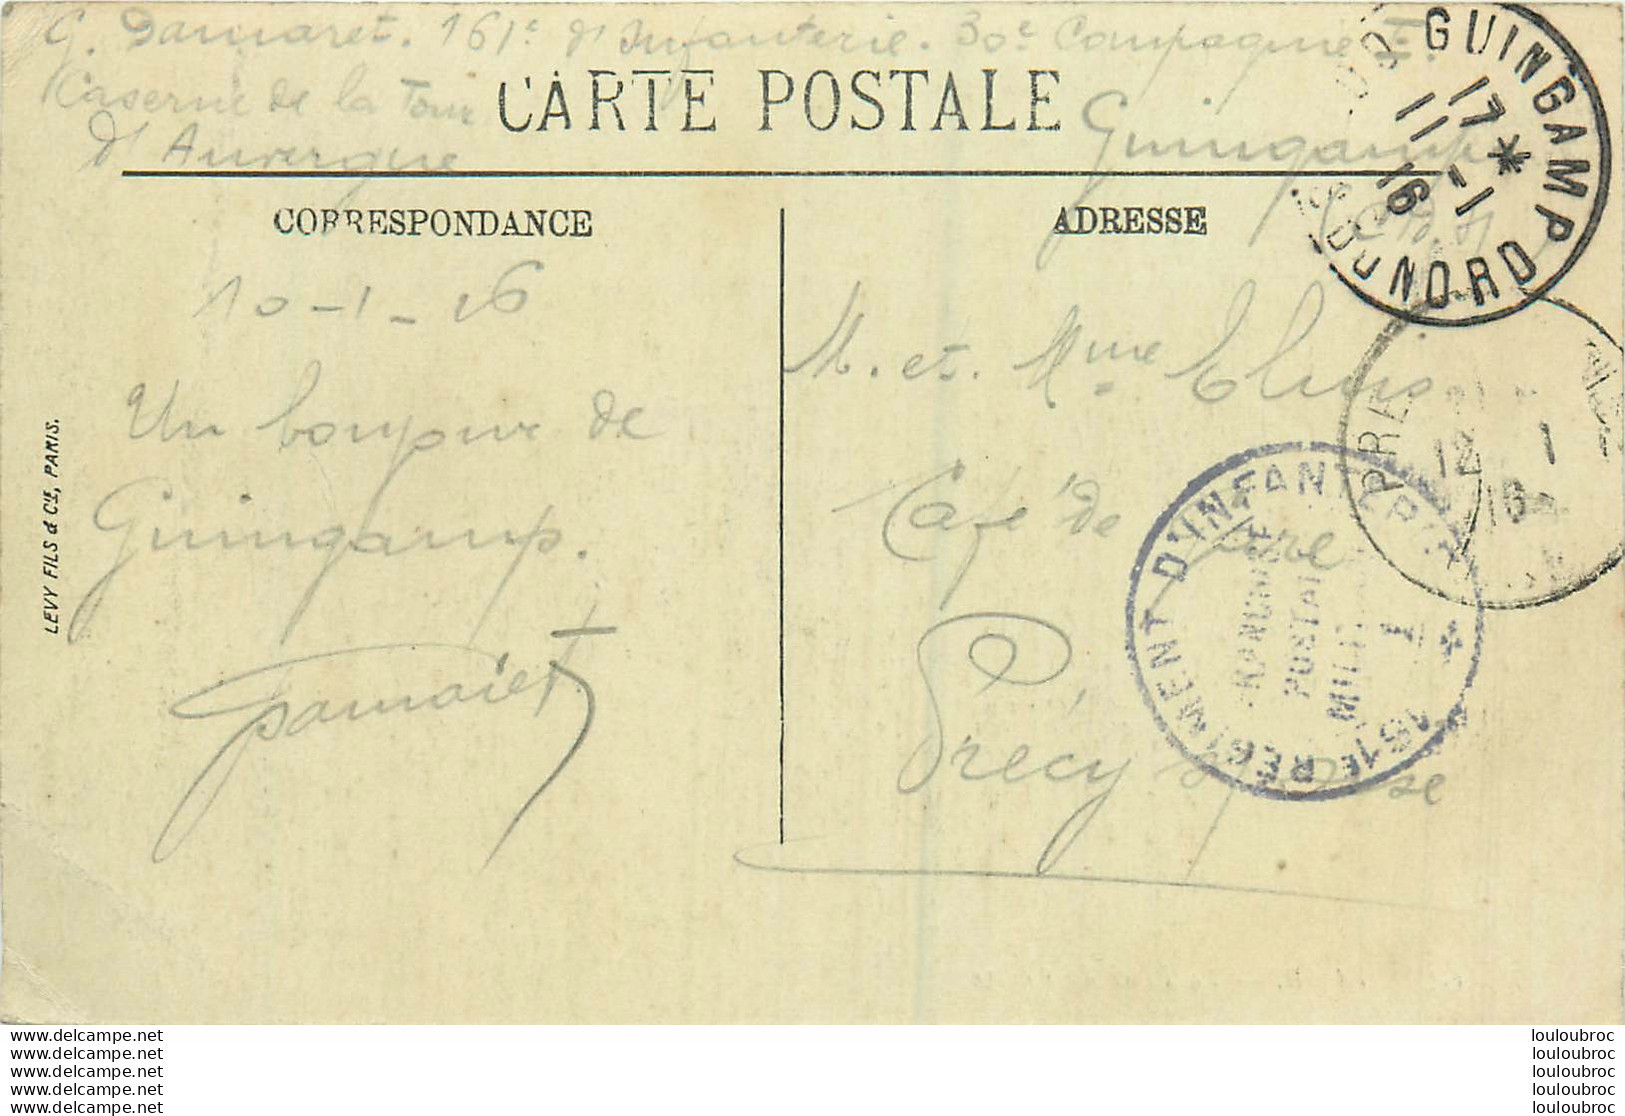 G. Damaret. 161e d'Infanterie. 30e Compagnie
Caserne de la Tour
d'Auvergne
Guingamp
CARTE POSTALE
CORRESPONDANCE
ADRESSE
10-1-16
Un bonjour de
Guingamp.
Damaret
M. et Mme
Café de
Précy s/ Oise
LEVY FILS & Cie, PARIS.
GUINGAMP
17 *
11 - 1
16
COTES DU NORD
PRE
12 1
16
161e REGIMENT D'INFANTERIE
FRANCHISE
POSTALE
MILIT
www.delcampe.net
www.delcampe.net
www.delcampe.net
www.delcampe.net
www.delcampe.net
louloubroc
louloubroc
louloubroc
louloubroc
louloubroc